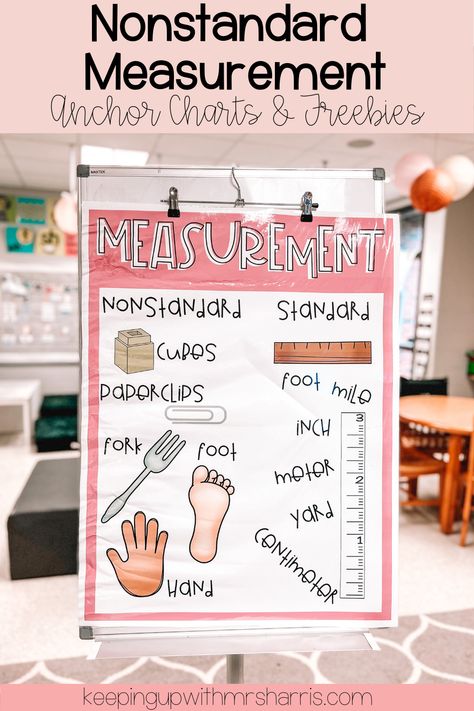 Nonstandard
Measurement
Anchor Charts & Freebies
MASTER
MEASUREMENT
NONSTANDARD
CUBES
PAPERCLIPS
FORK
FOOT
HAND
STANDARD
FOOT
MILE
INCH
METER
YARD
CENTIMETER
3
2
1
keepingupwithmrsharris.com